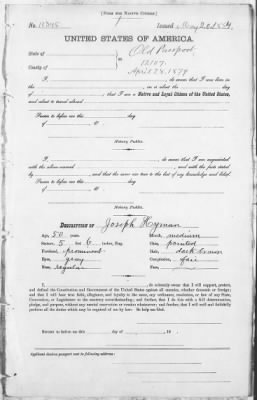 [FORM FOR NATIVE CITIZEN.]
No. Issued
UNITED STATES OF AMERICA.
State of Old Passport
County of 12107
April 28. 1879
I, , do swear that I was born in
, on or about the day of
, ; that I am a Native and Loyal Citizen of the United States,
and about to travel abroad.
Sworn to before me this day
of , 18 .
Notary Public.
I, , do swear that I am acquainted
with the above-named , and with the facts stated
by , and that the same are true to the best of my knowledge and belief.
Sworn to before me this day
of , 18 .
Notary Public.
DESCRIPTION OF Joseph Hyman
Age, 50 years. Mouth, medium
Stature, 5 feet 6 inches, Eng. Chin, pointed
Forehead, prominent Hair, dark brown
Eyes, gray Complexion, fair
Nose, regular Face,
I, , do solemnly swear that I will support, protect,
and defend the Constitution and Government of the United States against all enemies, whether domestic or foreign;
and that I will bear true faith, allegiance, and loyalty to the same, any ordinance, resolution, or law of any State,
Convention, or Legislature to the contrary notwithstanding; and further, that I do this with a full determination,
pledge, and purpose, without any mental reservation or evasion whatsoever; and further, that I will well and faithfully
perform all the duties which may be required of me by law: So help me God.
Sworn to before me this day of , 18 .
Applicant desires passport sent to following address: